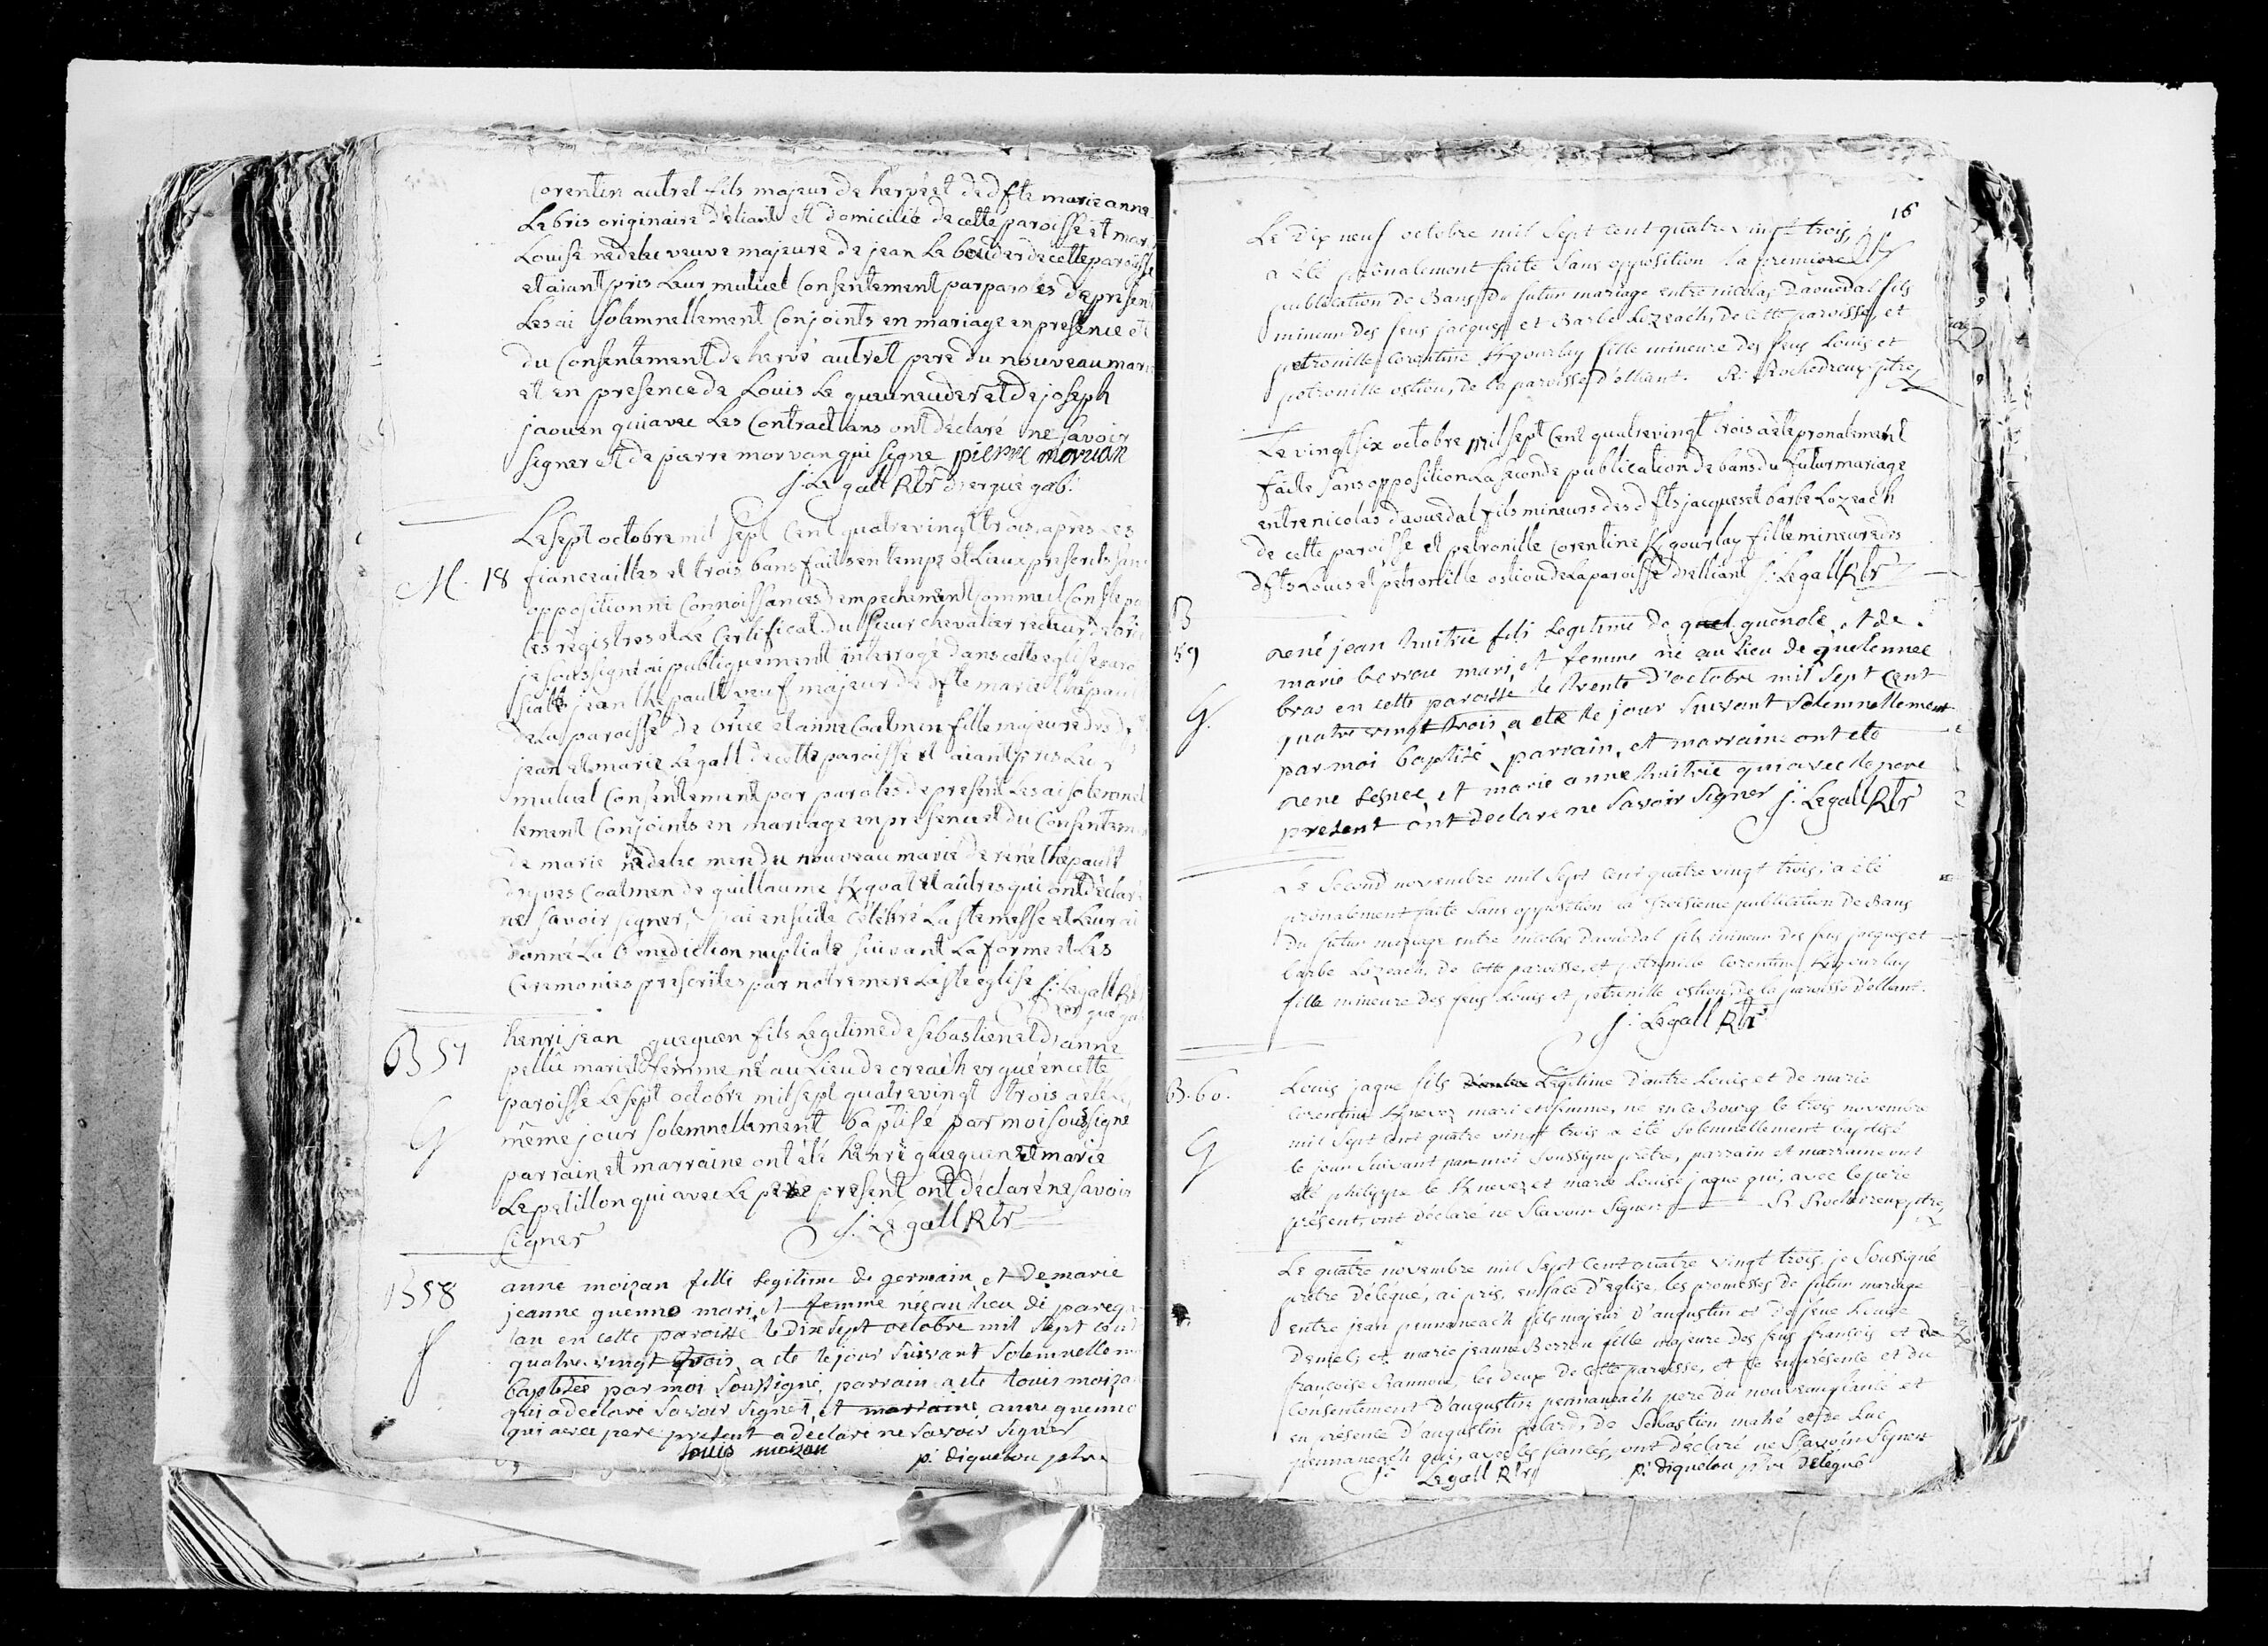 Corentin autret fils majeur de hervé et de dfte marie anne
Le bris originaire d'eliant et domicilié de cette paroisse et mari
Louise nedelec veuve majeure de jean Le bouder de cette paroisse
et aiant pris Leur mutuel Consentement par paroles de present
Les ai Solemnellement Conjoints en mariage en presence et
du Consentement de hervé autret pere du nouveau marié
et en presence de Louis Le queuneuder et de joseph
jaouen qui avec Les Contractans ont déclaré ne Savoir
Signer et de pierre morvan qui Signe pierre morvan
j: Le gall Rtr d'ergué gab:
Le sept octobre mil sept Cent quatrevingt trois, après Les
M. 18 fiancailles et trois bans faits en temps et Lieux prescrits San
opposition ni Connoissances d'empechement Comme il Conste pa
Les registres et Le Certificat du Sieur chevalier recteur de briec
je soussigné ai publiquement interrogé dans cette eglise paro
jean thepault veuf majeur de dfte marie
de La paroisse de briec et anne Coatmen fille majeure des dfts
jean et marie Le gall de cette paroisse et aiant pris Leur
mutuel Consentement par paroles de present Les ai solemnel
lement Conjoints en mariage en presence et du Consentem
de marie nedelec mere du nouveau marié de rené thepault
d'yves Coatmen de guillaume Kgoat et autres qui ont déclaré
ne savoir signer, j'ai ensuite Célébré La ste messe et Leur ai
donné La benediction nuptiale suivant La forme et Les
Ceremonies prescrites par notre mere La ste eglise j: Le gall Rtr
d'ergué gab
B 57 henri jean gueguen fils Legitime de sebastien et d'anne
pellie mari et femme né au Lieu de creac'h ergué en cette
paroisse Le sept octobre mil sept quatrevingt trois a été Le
même jour solemnellement baptisé par moi soussigné
G parrain et marraine ont été henri gueguen et marie
Le petillon qui avec Le pere present ont déclaré ne savoir
signer j: Le gall Rtr
B 58 anne moizan fille legitime de germain et de marie
jeanne guenno mari et femme née au lieu de pareg
lan en cette paroisse le dix sept octobre mil sept cent
f quatre vingt trois a ete le jour suivant solemnellem
baptisée par moi soussigné, parrain a ete louis moizan
qui a declaré savoir signer, et marraine anne guenno
qui avec pere present a declaré ne savoir signer
louis moizan p. diquelou ptre
16
Le dix neuf octobre mil sept cent quatre vingt trois,
a été prônalement faite sans opposition la premiere
publication de Bans du futur mariage entre nicolas Daouedal fils
mineur des feus jacques et Barbe Lozeach, de cette paroisse, et
petronille Corentine Kgourlay fille mineure des feus Louis et
petronille ostiou, de la paroisse d'elliant. R: Rochedreux ptre
Le vingt six octobre mil sept Cent quatrevingt trois a été pronalement
faite sans opposition La seconde publication de bans du futur mariage
entre nicolas daouedal fils mineurs des dfts jacques et barbe Lozeach
de cette paroisse et petronille Corentine Kgourlay fille mineure des
dfts Louis et petronille ostiou de La paroisse d'elliant j: Le gall Rtr
B
59 rené jean huitrie fils legitime de quenole et de
marie berrou mari et femme né au lieu de quelennec
bras en cette paroisse le trente d'octobre mil sept cent
G. quatre vingt trois a ete le jour suivant solemnellement
par moi baptisé, parrain, et marraine ont ete
rene et marie anne huitrie qui avec le pere
present ont declaré ne savoir signer j: Le gall Rtr
Le second novembre mil sept cent quatre vingt trois, a été
prônalement faite sans opposition la troisieme publication de Bans
du futur mariage entre nicolas Daouedal fils mineur des feus jacques et
barbe Lozeach, de cette paroisse, et petronille Corentine Kgourlay
fille mineure des feus Louis et petronille ostiou, de la paroisse d'elliant.
j: Le gall Rtr
B. 60. Louis jaque fils d'autre Légitime d'autre Louis et de marie
Corentine Knevez mari et femme, né en ce Bourg le trois novembre
mil sept cent quatre vingt trois a été solemnellement baptisé
G le jour suivant par moi soussigné prêtre, parrain et marraine ont
été philippe le Knevez et marie Louise jaque qui, avec le pere
présent, ont déclaré ne sçavoir signer R Rochedreux ptre,
Le quatre novembre mil sept cent quatre vingt trois, je soussigné
prêtre délégué, ai pris, en face d'eglise, les promesses de futur mariage
entre jean pennaneach fils majeur d'augustin et de feue Louise
Deniel, et marie jeanne Berrou fille majeure des feus françois et de
françoise Rannou, les deux de cette paroisse, et ce en présence et du
Consentement d'augustin pennaneach pere du nouveau fiancé et
en présence d'augustin, de sébastien mahé et de Luc
pennaneach qui, avec les fiancés, ont déclaré ne sçavoir signer
j: Le gall Rtr p: diquelou ptre délégué